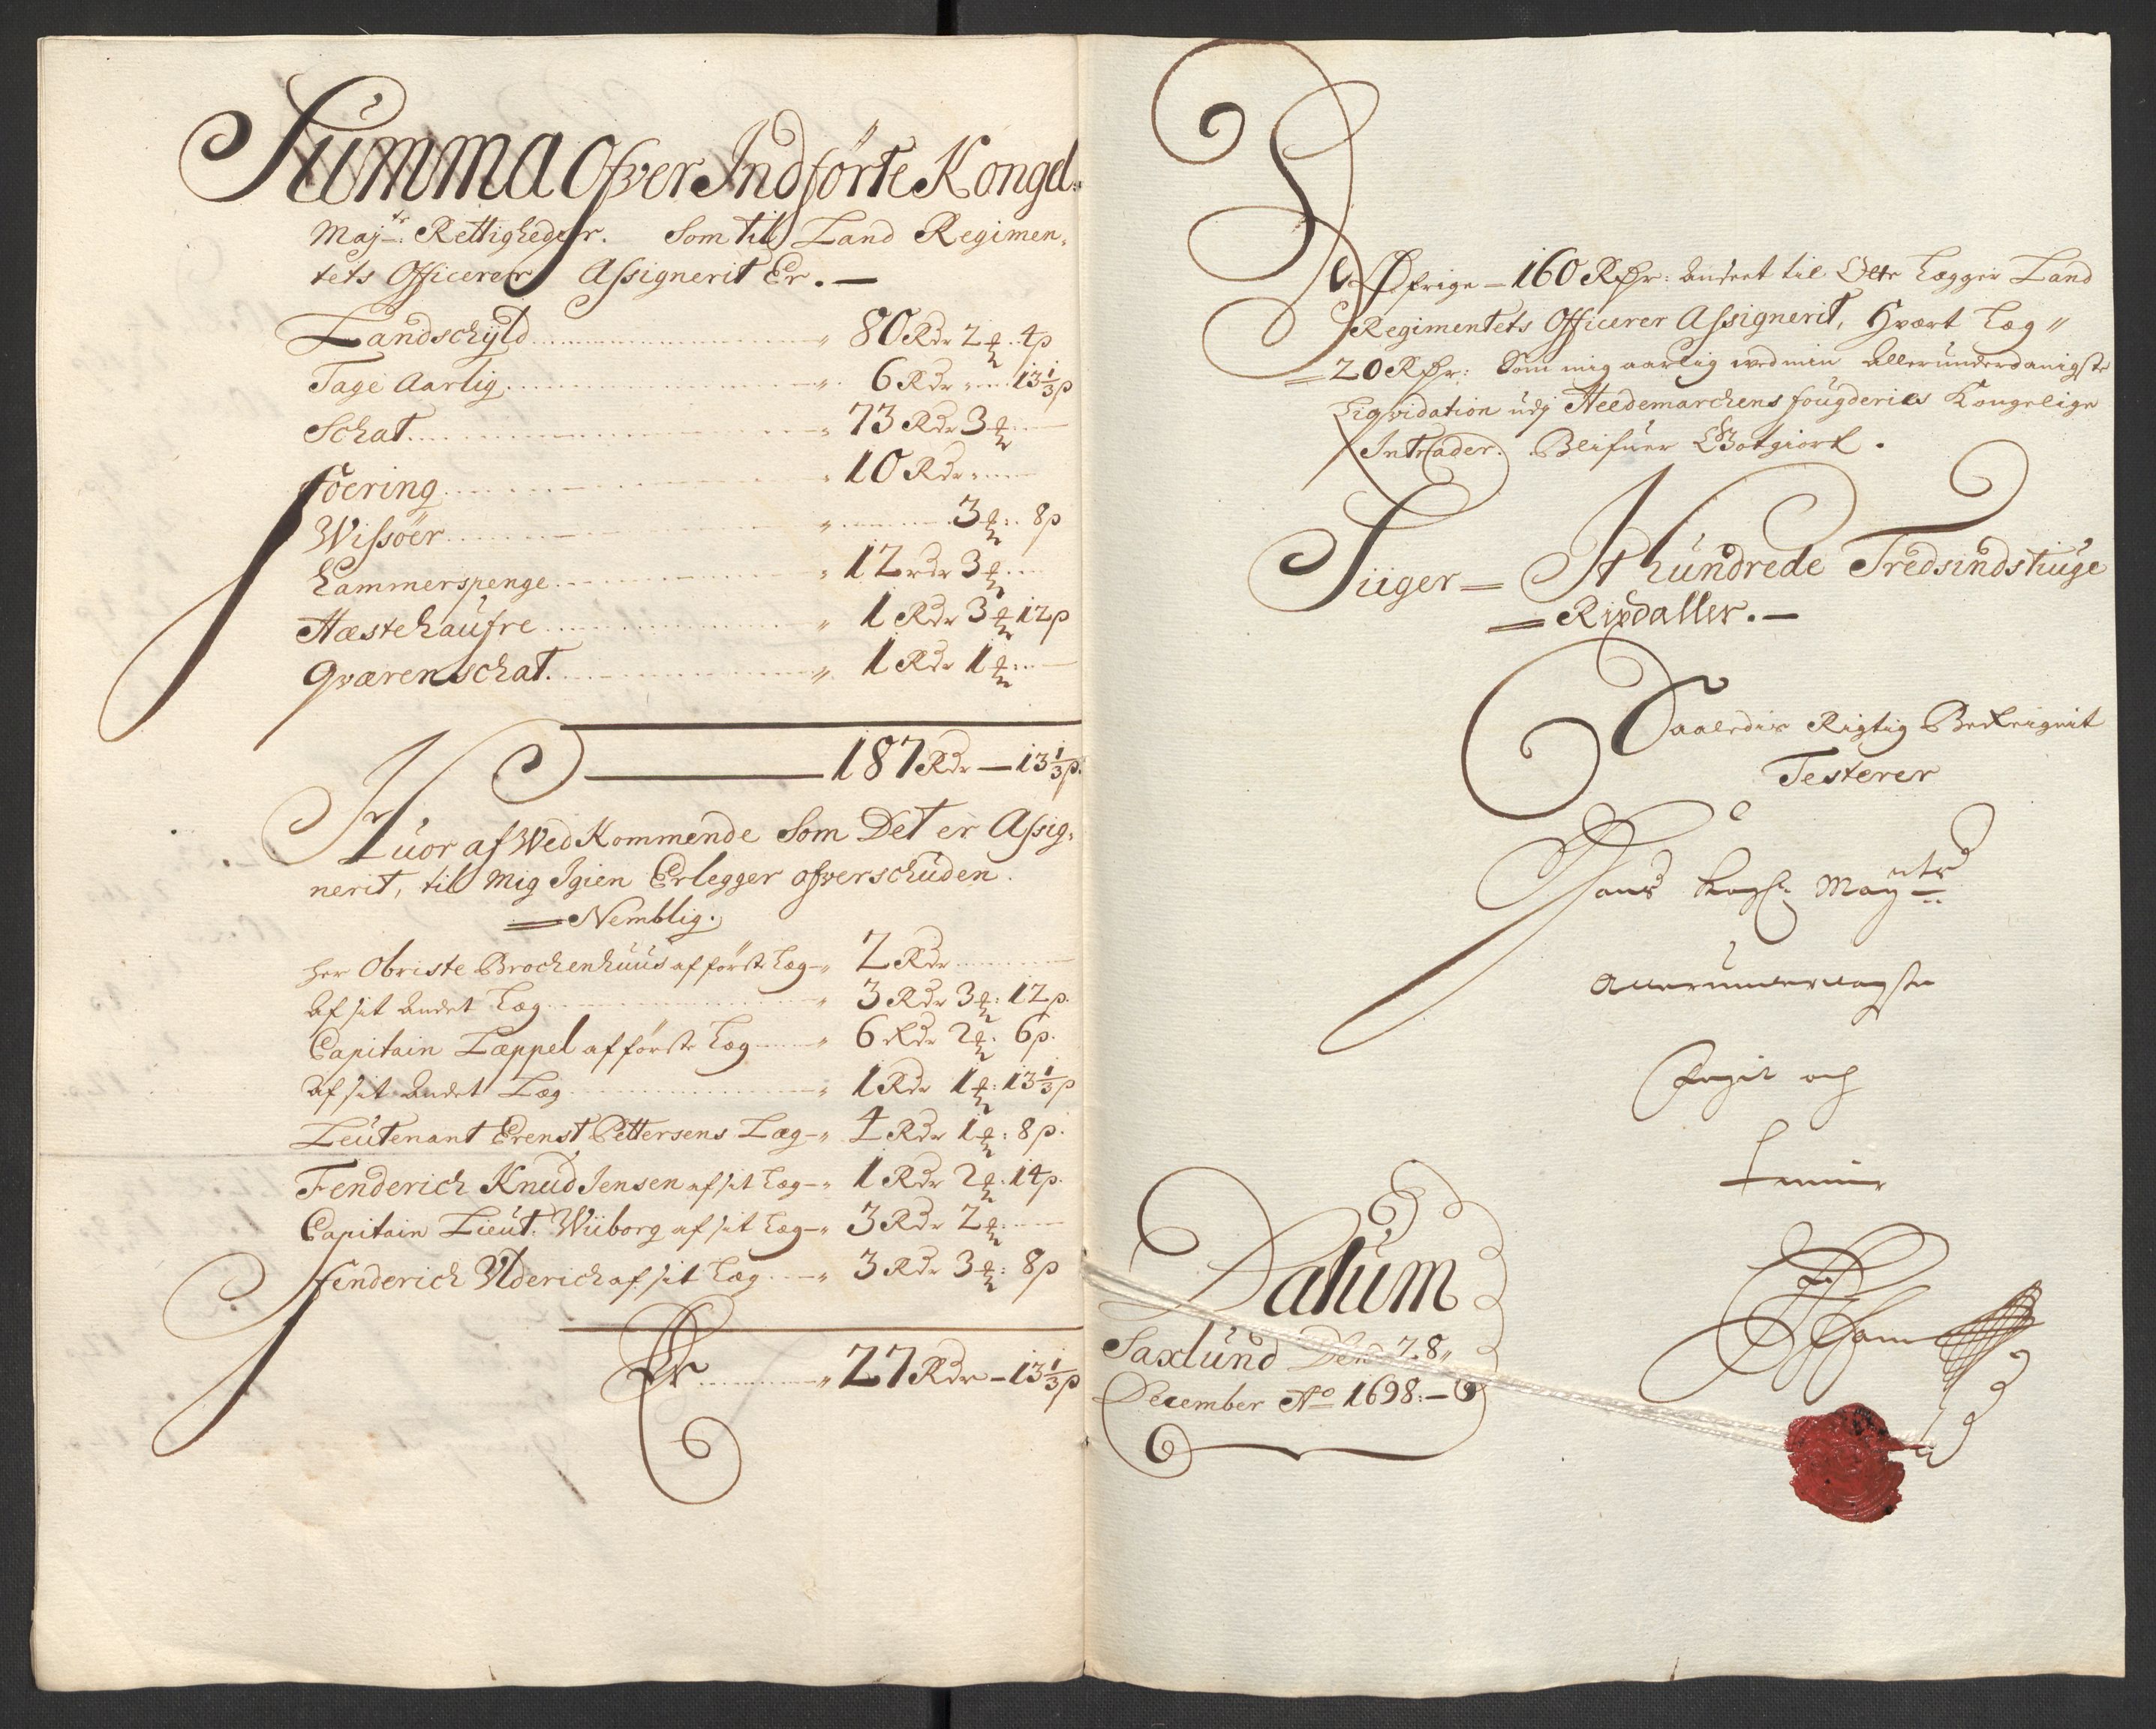 Summa Ofver Indförte Kongel:
Maj:tz Rettigheder. Som til Land Regimen,
tets Officerer Assignerit Er. —
Landschyld " 80 Rdr 2 ƶ 4 p
Tage Aarlig " 6 Rdr 13 1/3 p
Schat " 73 Rdr 3 ƶ
foering " 10 Rdr
Wissöer " 3 ƶ: 8 p
Lammerspenge " 12 rdr 3 ƶ
Hæstehaufre " 1 Rdr 3 ƶ 12 p
Qværenschat. " 1 Rdr 1 ƶ
187 Rdr — 13 1/3 p.
Huor af Ved Kommende Som Det er Assig,
nerit, til Mig Igien Erlegger ofverschuden.
Nemblig.
her Obriste Brochenhuus af förste Læg " 2 Rdr
Af sit Andet Læg " 3 Rdr 3 ƶ: 12 p.
Capitain Læppel af förste Læg " 6 Rdr 2 ƶ. 6 p.
Af sit Andet Læg " 1 Rdr 1 ƶ: 13 1/3 p
Leutenant Erenst Pettersens Læg " 4 Rdr 1 ƶ: 8 p.
Fenderich Knud Jensen af sit Læg " 1 Rdr 2 ƶ. 14 p.
Capitain Lieut. Wiiborg af sit Læg " 3 Rdr 2 ƶ.
fenderich Ulderich af sit Læg " 3 Rdr 3 ƶ: 8 p
Er " 27 Rdr — 13 1/3 p
Øfrige — 160 Rdr: til Otte Lægger Land
Regimentets Officerer Assignerit, Hvært Læg "
= 20 Rdr: Som mig aarlig ved min Allerunderdanigste
Liqvidation udj Heedemarchens fougderies Kongelige
Intrader. Blifuer Godtgiort.
Siiger — It hundrede Tredsindstiuge
= Rixdaller. —
Saaledis Rigtig
Testerer
Hans Kongl: May:tz
Allerunderdanigste
och
Datum
Saxlund Den 28,
December Ao 1698. —